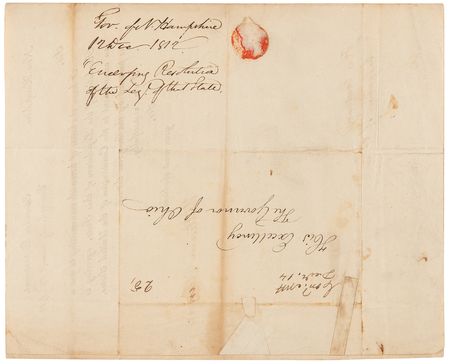 Gov. of N. Hampshire
12 Dec 1812
"Enclosing Resolution
of the Leg. of that State.
His Excellency
The Governor of Ohio
Concord NH
Dec. 14
25,